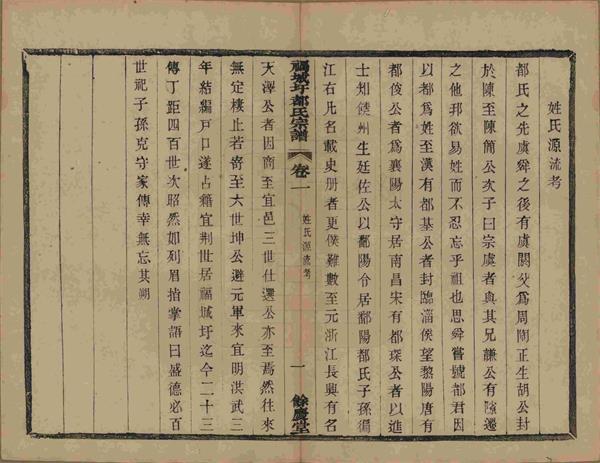 姓氏源流考
都氏之先虞舜之後有虞閼父爲周陶正生胡公封
於陳至陳簡公次子曰宗虞者與其兄謙公有隙遷
之他邦欲易姓而不忍忘乎祖也思舜嘗號都君因
以都爲姓至漢有都基公者封臨淄侯望黎陽唐有
都俊公者爲襄陽太守居南昌宋有都琛公者以進
士知饒州生廷佐公以鄱陽令居鄱陽都氏子孫徧
江右凡名載史册者更僕難數至元浙江長興有名
福城圩都氏宗譜
卷一
姓氏源流考
一
餘慶堂
天澤公者因商至宜邑三世仕選公亦至焉然往來
無定棲止若寄至大世坤公避元軍來宜明洪武三
年結編戸口遂占籍宜荆世居福城圩迄今二十三
傳丁距四百世次昭然如列眉指掌語曰盛德必百
世祀子孫克守家傳幸無忘其朔